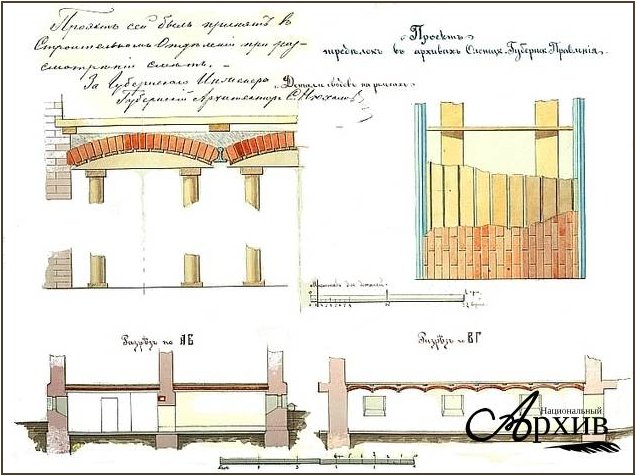 Проектъ сей былъ принятъ въ
Строительномъ Отдѣленіи при раз-
смотрѣніи смѣтъ. –
За Губернскаго Инженера
Губернскій Архитекторъ С.
Проектъ
передѣлок въ архивахъ Губерн. Правленія
Детали сводовъ на рельсахъ
Масштабъ для деталей
Разрѣзъ по АБ
Разрѣзъ по ВГ
Национальный
Архив